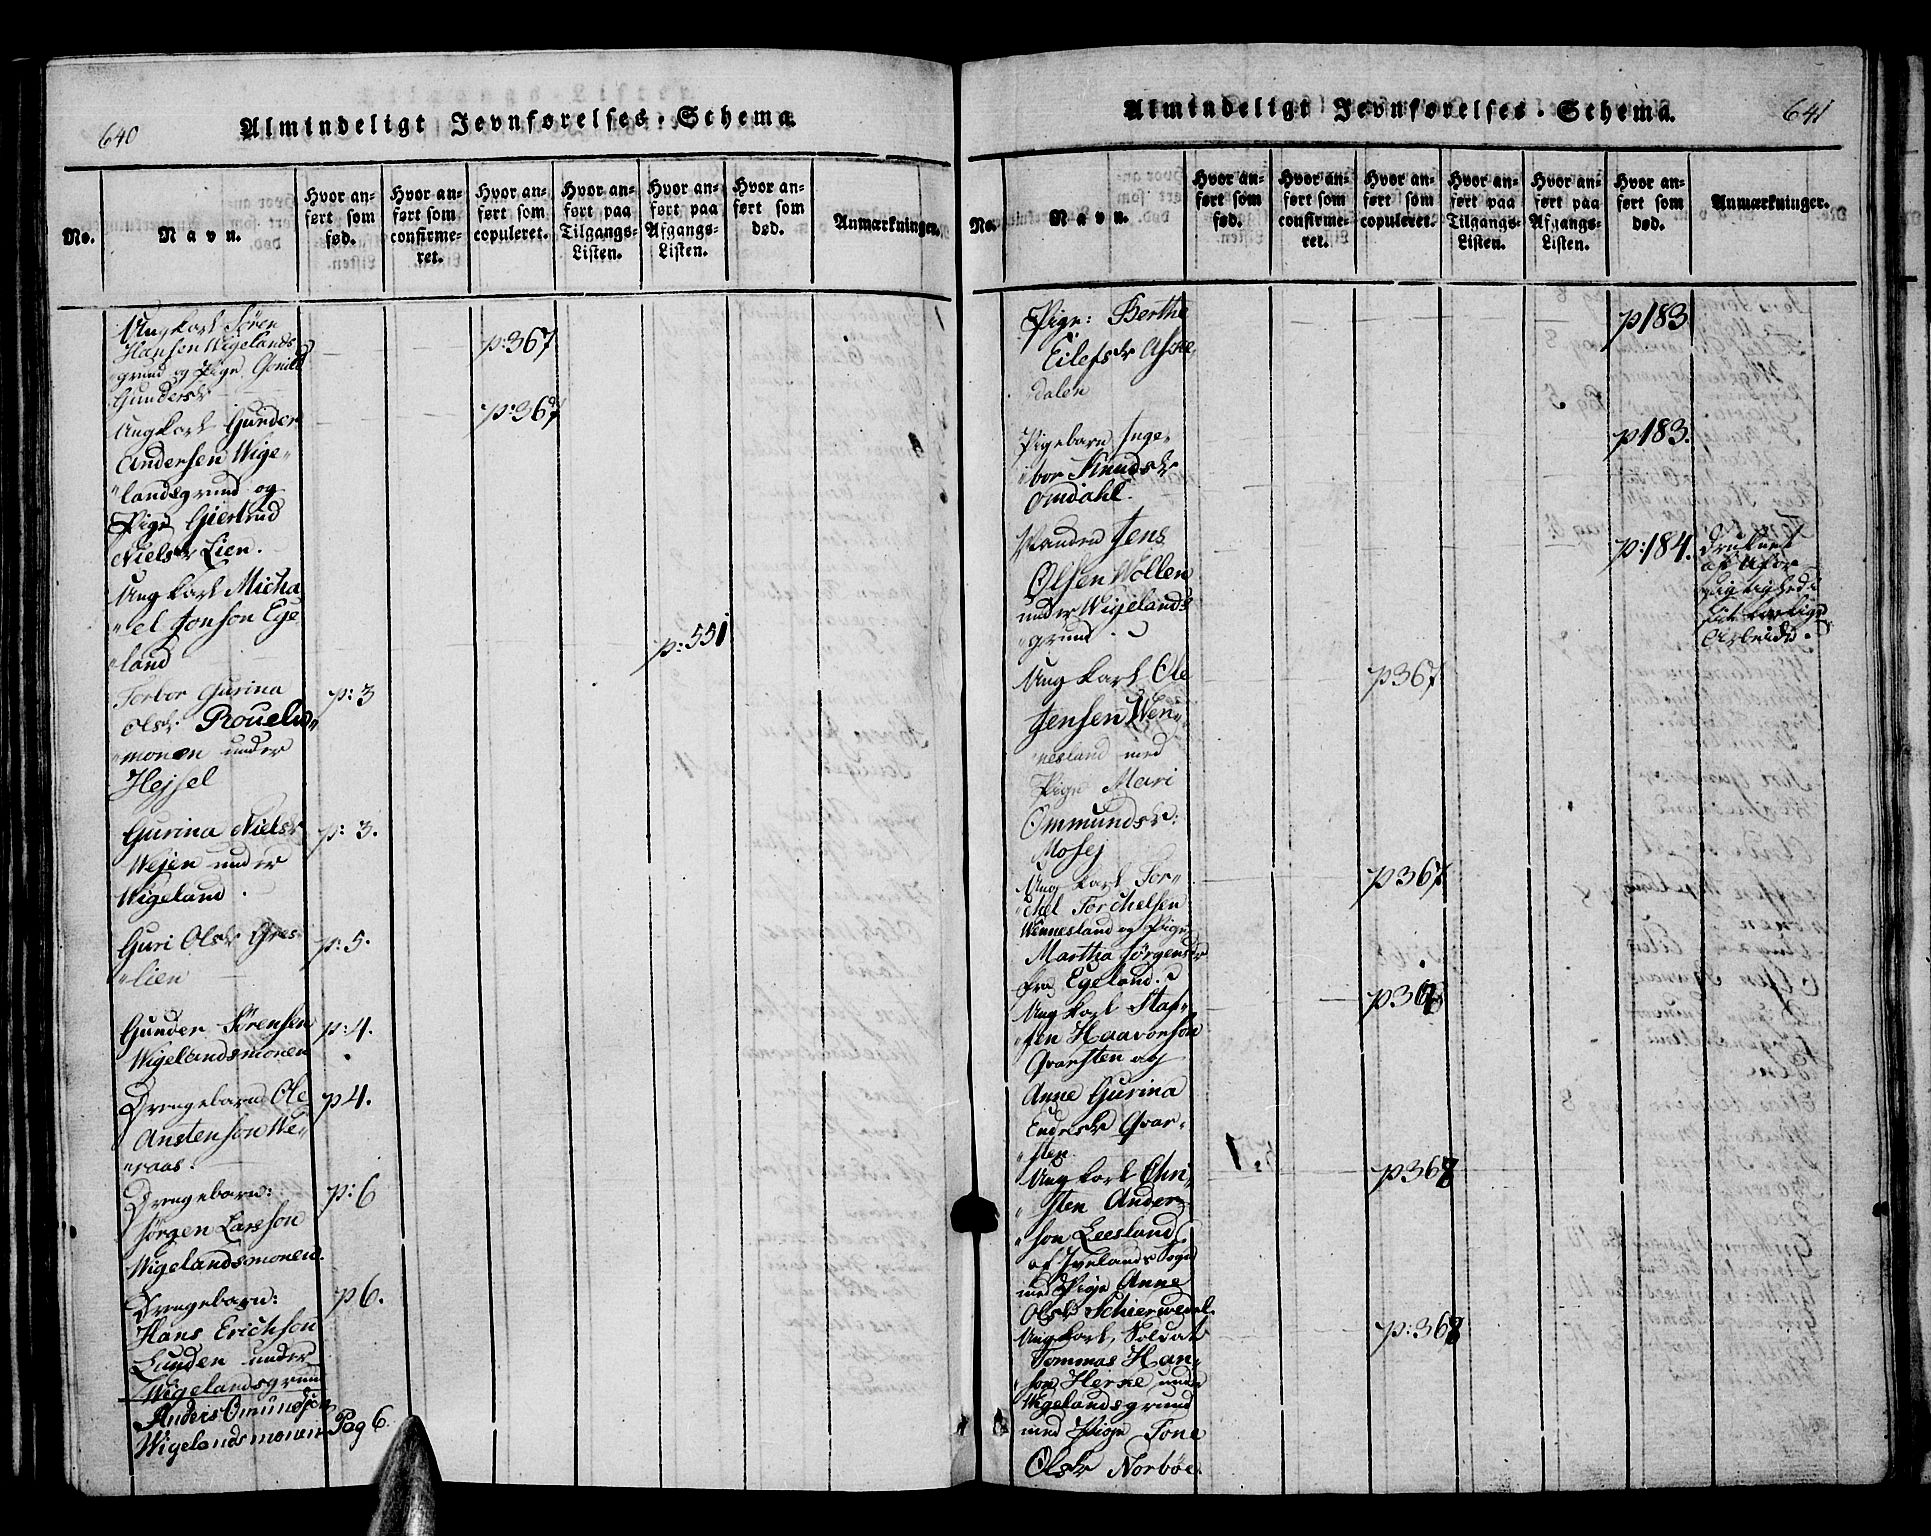 640
Almindeligt Jevnførelses-Schema.
No.
Navn.
Hvor an-
ført som
fød.
Hvor an-
ført som
confirme-
ret.
Hvor an-
ført som
copuleret.
Hvor an-
ført paa
Tilgangs-
Listen.
Hvor an-
ført paa
Afgangs-
Listen.
Hvor an-
ført som
død.
Anmærkninger.
Ungkarl Søren
Hansen Wigelands
grund og Pige Gonild
Gundersdr
p:367
Ungkarl Gunder
Andersen Wige-
landsgrund og
Pige Giertrud
Nielsdr Lien.
p:367
Ungkarl Micha
el Jonson Ege
land
p:551
Torbor Gurina
Olsdr. Rouelds
monen under
Hejsel
p:3
Gurina Nielsdr
Wejen under
Wigeland.
p:3.
Guri Olsdr Gres-
lien
p:5.
Gunder Sørensen
Wigelandsmonen
p:4.
Drengebarn Ole
Anstenson We-
raas.
p4.
Drengebarn:
Jørgen Larsson
Wigelandsmonen.
p:6
Drengebarn:
Hans Erichson
Lunden under
Wigelandsgrund
p6.
Anders Omundsen
Wigelandsmonen Pag 6.
641
Almindeligt Jevnførelses-Schema.
No.
Navn.
Hvor an-
ført som
fød.
Hvor an-
ført som
confirme-
ret.
Hvor an-
ført som
copuleret.
Hvor an-
ført paa
Tilgangs-
Listen.
Hvor an-
ført paa
Afgangs-
Listen.
Hvor an-
ført som
død.
Anmærkninger.
Pige: Berthe
Eilefsdr
dalen
p183
Pigebarn Inge-
bor Knudsdr
Omdahl.
p183.
Manden Jens
Olsen Wollen
under Wigelands
grund.
p:184.
Druknet
af Ufor
sigtighed i
sit
Arbeide.
Ungkarl Ole
Jensen Wen-
nesland med
Pige Mari
Ommundsdr:
Mosej
p367
Ungkarl Tor-
chel Torchelsen
Wennesland og Pige
Martha Jørgensdr
fra Egeland.
p367
Ungkarl Staf-
fen Haavorson
Qvarsten og
Anne Gurina
Endresdr Qvar-
sten
p368
Ungkarl Chri-
sten Ander-
son Leesland
af Ivelands Sogn
med Pige Anne
Olsdr Schierwedel.
p368
Ungkarl, Soldat
Tommas Han-
son Herse under
Wigelandsgrund
med Pige Tone
Olsdr Norbøe.
p:368